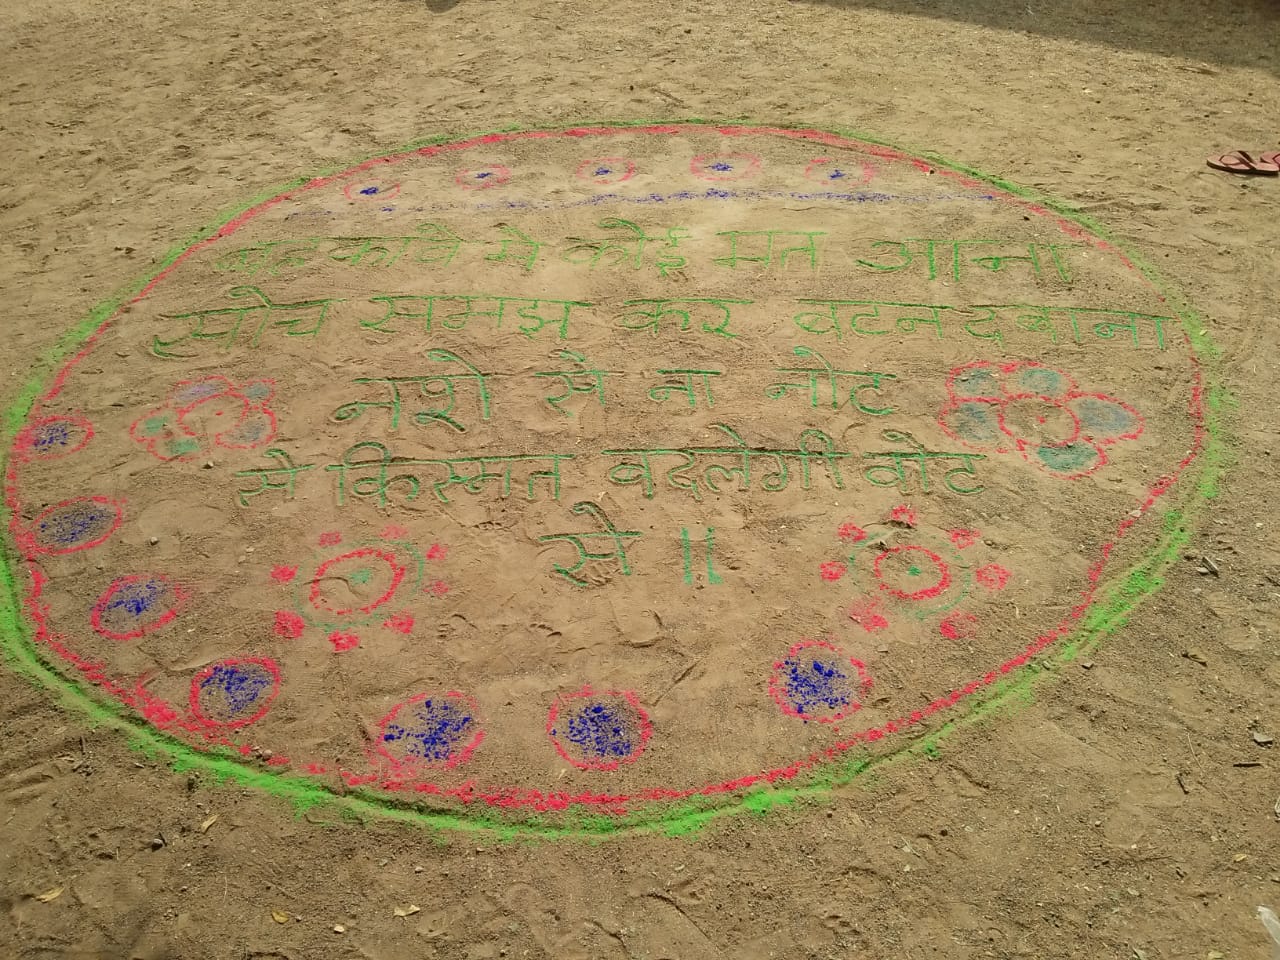 बहकावे मे कोई मत आना
सोच समझ कर बटन दबाना
नशे से ना नोट
से किस्मत बदलेगी वोट
से ॥